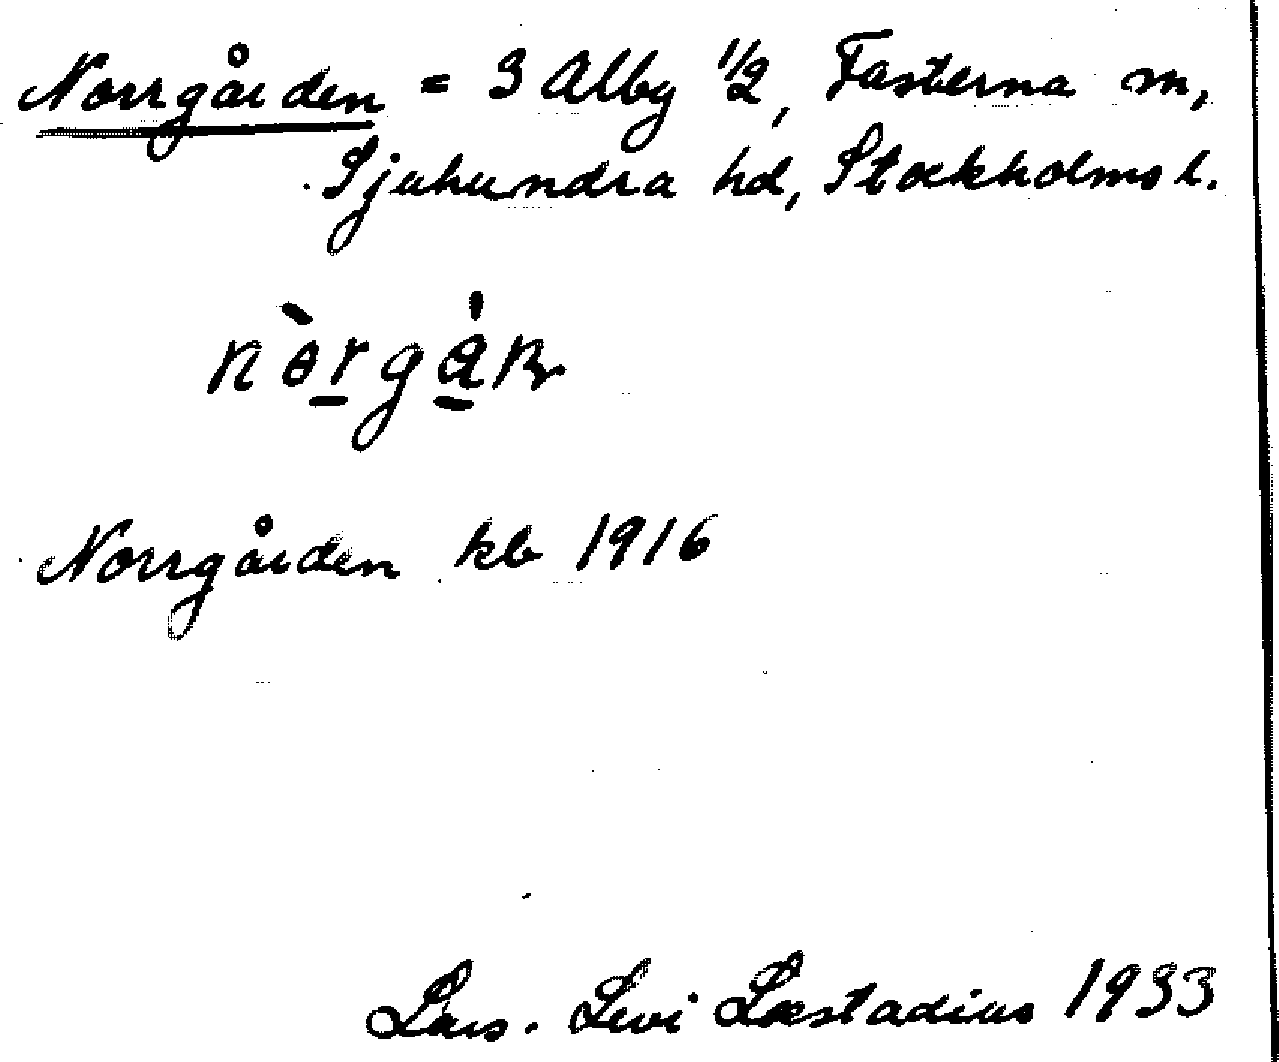 Norrgården = 3 Alby 1/2, Fasterna sn,
Sjuhundra hd, Stockholms l.
nòrgån
Norrgården kb 1916
Lars. Levi Læstadius 1933